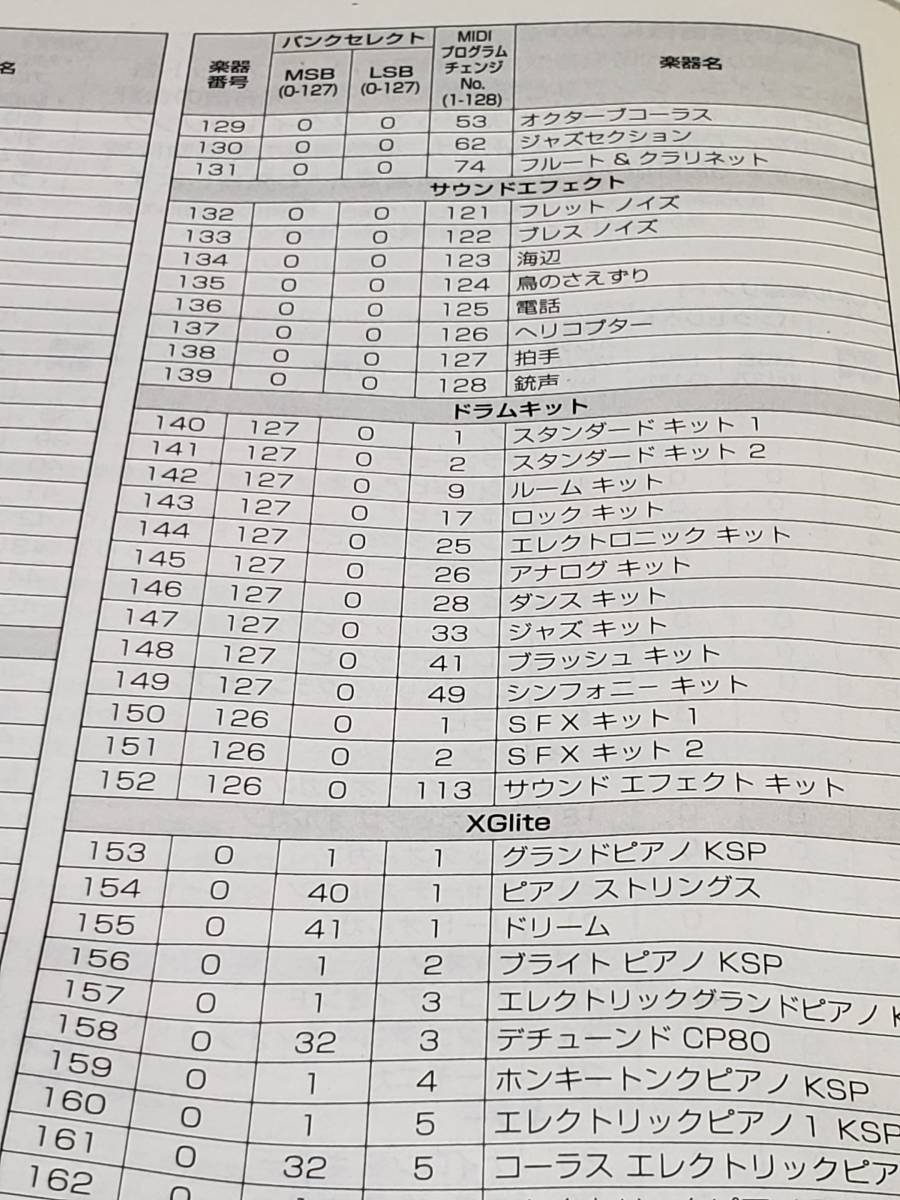 名
楽器番号 バンクセレクト MIDIプログラムチェンジNo.(1-128) 楽器名
MSB(0-127) LSB(0-127)
129 0 0 53 オクターブコーラス
130 0 0 62 ジャズセクション
131 0 0 74 フルート & クラリネット
サウンドエフェクト
132 0 0 121 フレット ノイズ
133 0 0 122 ブレス ノイズ
134 0 0 123 海辺
135 0 0 124 鳥のさえずり
136 0 0 125 電話
137 0 0 126 ヘリコプター
138 0 0 127 拍手
139 0 0 128 銃声
ドラムキット
140 127 0 1 スタンダード キット 1
141 127 0 2 スタンダード キット 2
142 127 0 9 ルーム キット
143 127 0 17 ロック キット
144 127 0 25 エレクトロニック キット
145 127 0 26 アナログ キット
146 127 0 28 ダンス キット
147 127 0 33 ジャズ キット
148 127 0 41 ブラッシュ キット
149 127 0 49 シンフォニー キット
150 126 0 1 SFX キット 1
151 126 0 2 SFX キット 2
152 126 0 113 サウンド エフェクト キット
XGlite
153 0 1 1 グランドピアノ KSP
154 0 40 1 ピアノ ストリングス
155 0 41 1 ドリーム
156 0 1 2 ブライト ピアノ KSP
157 0 1 3 エレクトリックグランドピアノ
158 0 32 3 デチューンド CP80
159 0 1 4 ホンキートンクピアノ KSP
160 0 1 5 エレクトリックピアノ1 KSP
161 0 32 5 コーラス エレクトリックピア
162 0